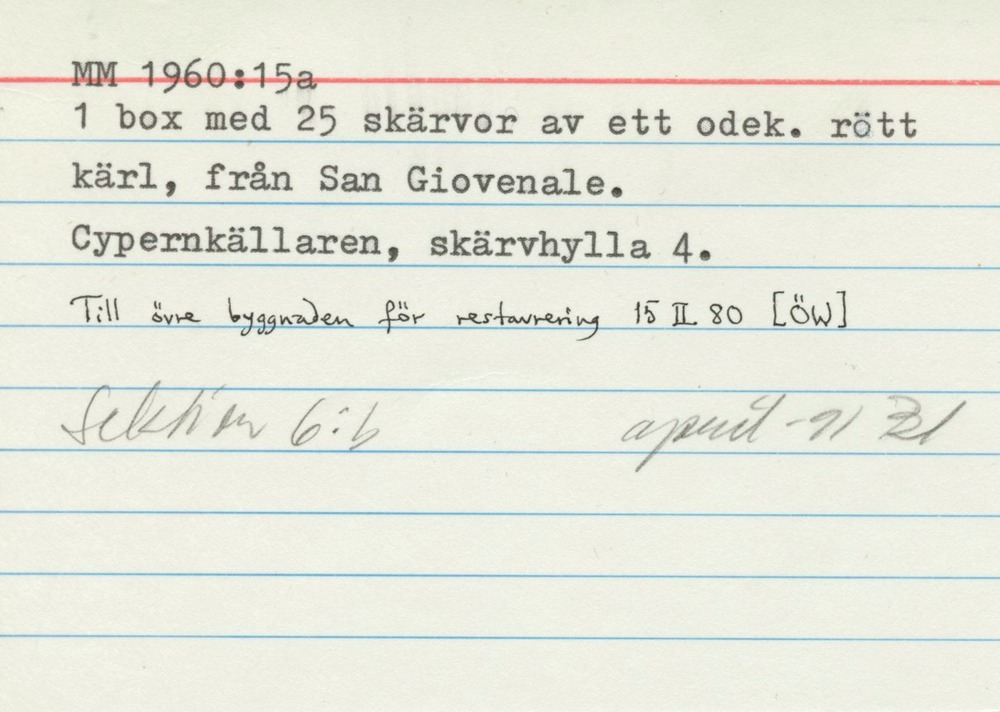 MM 1960:15a
1 box med 25 skärvor av ett odek. rött
kärl, från San Giovenale.
Cypernkällaren, skärvhylla 4.
Till övre byggnaden för restaurering 15 II 80 [ÖW]
Sektion 6:b april -91